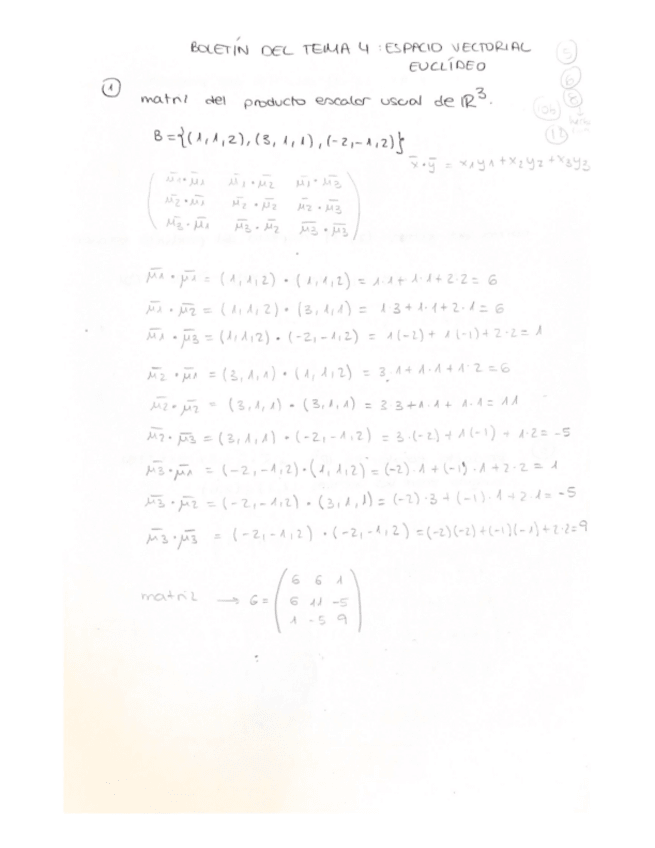 BOLETÍN DEL TEMA 4: ESPACIO VECTORIAL
EUCLÍDEO
5
6
8
10b
12
1
matriz del producto escalar usual de ℝ³.
B = {(1,1,2), (3,1,1), (-2,-1,2)}
x̄·ȳ = x1y1 + x2y2 + x3y3
μ̄1·μ̄1 μ̄1·μ̄2 μ̄1·μ̄3
μ̄2·μ̄1 μ̄2·μ̄2 μ̄2·μ̄3
μ̄3·μ̄1 μ̄3·μ̄2 μ̄3·μ̄3
μ̄1·μ̄1 = (1,1,2)·(1,1,2) = 1·1+1·1+2·2 = 6
μ̄1·μ̄2 = (1,1,2)·(3,1,1) = 1·3+1·1+2·1 = 6
μ̄1·μ̄3 = (1,1,2)·(-2,-1,2) = 1(-2)+1(-1)+2·2 = 1
μ̄2·μ̄1 = (3,1,1)·(1,1,2) = 3·1+1·1+1·2 = 6
μ̄2·μ̄2 = (3,1,1)·(3,1,1) = 3·3+1·1+1·1 = 11
μ̄2·μ̄3 = (3,1,1)·(-2,-1,2) = 3·(-2)+1(-1)+1·2 = -5
μ̄3·μ̄1 = (-2,-1,2)·(1,1,2) = (-2)·1+(-1)·1+2·2 = 1
μ̄3·μ̄2 = (-2,-1,2)·(3,1,1) = (-2)·3+(-1)·1+2·1 = -5
μ̄3·μ̄3 = (-2,-1,2)·(-2,-1,2) = (-2)(-2)+(-1)(-1)+2·2 = 9
6 6 1
matriz → G = 6 11 -5
1 -5 9